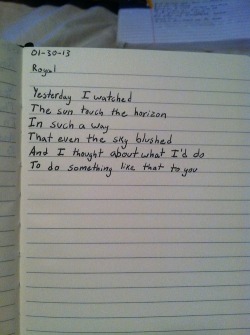 01-30-13
Royal
Yesterday I watched
The sun touch the horizon
In such a way
That even the sky blushed
And I thought about what I'd do
To do something like that to you